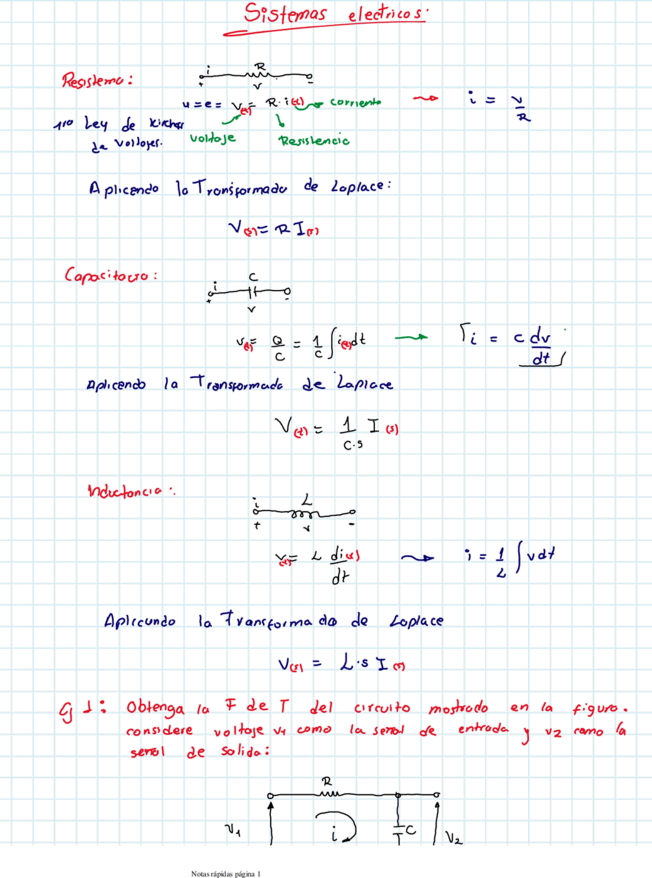 Sistemas electricos.
Resistema:
i R
+ v -
u = e = V(t) = R · i(t) → corriente → i = v/R
1ra Ley de Kirchof
de voltajes.
voltaje Resistencia
Aplicando la Transformada de Laplace:
V(s) = R I(s)
Capacitacia:
i C
+ v -
v(t) = Q/C = 1/C ∫i(t)dt → i = c dv/dt
Aplicando la Transformada de Laplace
V(t) = 1/C·s I(s)
Inductancia:
i L
+ v -
v(t) = L di(t)/dt → i = 1/L ∫vdt
Aplicando la Transformada de Laplace
V(s) = L·s I(s)
Ej 1: Obtenga la F de T del circuito mostrado en la figura.
considere voltaje v1 como la señal de entrada y v2 como la
señal de salida:
R
V1 i C V2
Notas rápidas página 1